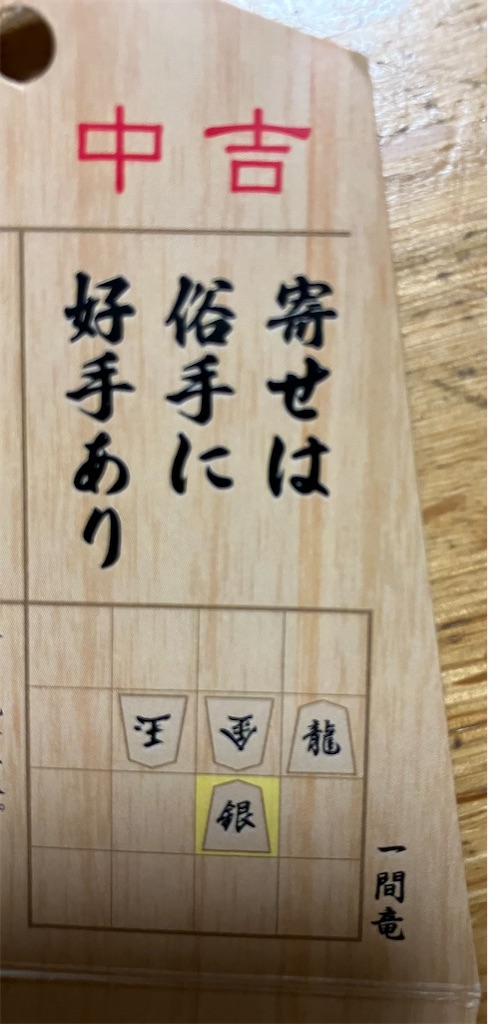 中吉
寄せは
俗手に
好手あり
玉金龍
銀
一間竜